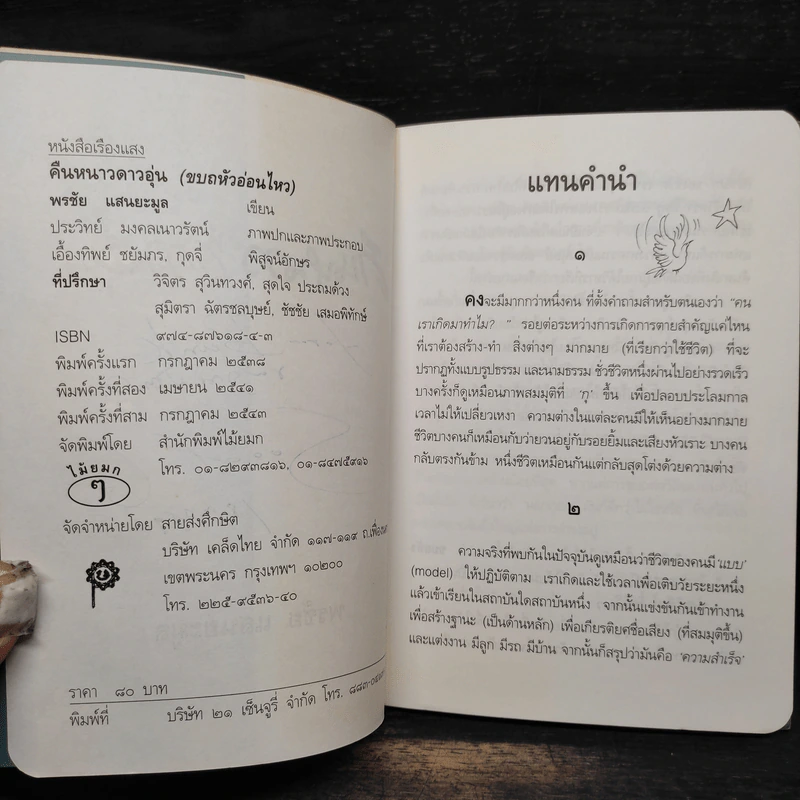 หนังสือเรืองแสง
คืนหนาวดาวอุ่น (ขบถหัวอ่อนไหว)
พรชัย แสนยะมูล เขียน
ประวิทย์ มงคลเนาวรัตน์ ภาพปกและภาพประกอบ
เอื้องทิพย์ ชยัมภร, กุดจี่ พิสูจน์อักษร
ที่ปรึกษา วิจิตร สุวินทวงศ์, สุดใจ ประถมด้วง
สุมิตรา ฉัตรชลบุษย์, ชัชชัย เสมอพิทักษ์
ISBN ๙๗๔-๘๗๖๑๘-๔-๓
พิมพ์ครั้งแรก กรกฎาคม ๒๕๓๘
พิมพ์ครั้งที่สอง เมษายน ๒๕๔๑
พิมพ์ครั้งที่สาม กรกฎาคม ๒๕๔๓
จัดพิมพ์โดย สำนักพิมพ์ไม้ยมก
โทร. ๐๑-๘๒๙๓๘๑๖, ๐๑-๘๔๗๕๙๑๖
ไม้ยมก
ๆ
จัดจำหน่ายโดย สายส่งศึกษิต
บริษัท เคล็ดไทย จำกัด ๑๑๗-๑๑๙ ถ.เฟื่องนคร
เขตพระนคร กรุงเทพฯ ๑๐๒๐๐
โทร. ๒๒๕-๙๕๓๖-๔๐
ราคา ๘๐ บาท
พิมพ์ที่ บริษัท ๒๑ เซ็นจูรี่ จำกัด โทร.
แทนคำนำ
๑
คงจะมีมากกว่าหนึ่งคน ที่ตั้งคำถามสำหรับตนเองว่า “คน
เราเกิดมาทำไม? ” รอยต่อระหว่างการเกิดการตายสำคัญแค่ไหน
ที่เราต้องสร้าง-ทำ สิ่งต่างๆ มากมาย (ที่เรียกว่าใช้ชีวิต) ที่จะ
ปรากฏทั้งแบบรูปธรรม และนามธรรม ชั่วชีวิตหนึ่งผ่านไปอย่างรวดเร็ว
บางครั้งก็ดูเหมือนภาพสมมุติที่ ‘กุ’ ขึ้น เพื่อปลอบประโลมกาล
เวลาไม่ให้เปลี่ยวเหงา ความต่างในแต่ละคนมีให้เห็นอย่างมากมาย
ชีวิตบางคนก็เหมือนกับว่ายวนอยู่กับรอยยิ้มและเสียงหัวเราะ บางคน
กลับตรงกันข้าม หนึ่งชีวิตเหมือนกันแต่กลับสุดโต่งด้วยความต่าง
๒
ความจริงที่พบกันในปัจจุบันดูเหมือนว่าชีวิตของคนมี ‘แบบ’
(model) ให้ปฏิบัติตาม เราเกิดและใช้เวลาเพื่อเติบวัยระยะหนึ่ง
แล้วเข้าเรียนในสถาบันใดสถาบันหนึ่ง จากนั้นแข่งขันกันเข้าทำงาน
เพื่อสร้างฐานะ (เป็นด้านหลัก) เพื่อเกียรติยศชื่อเสียง (ที่สมมุติขึ้น)
และแต่งงาน มีลูก มีรถ มีบ้าน จากนั้นก็สรุปว่ามันคือ ‘ความสำเร็จ’